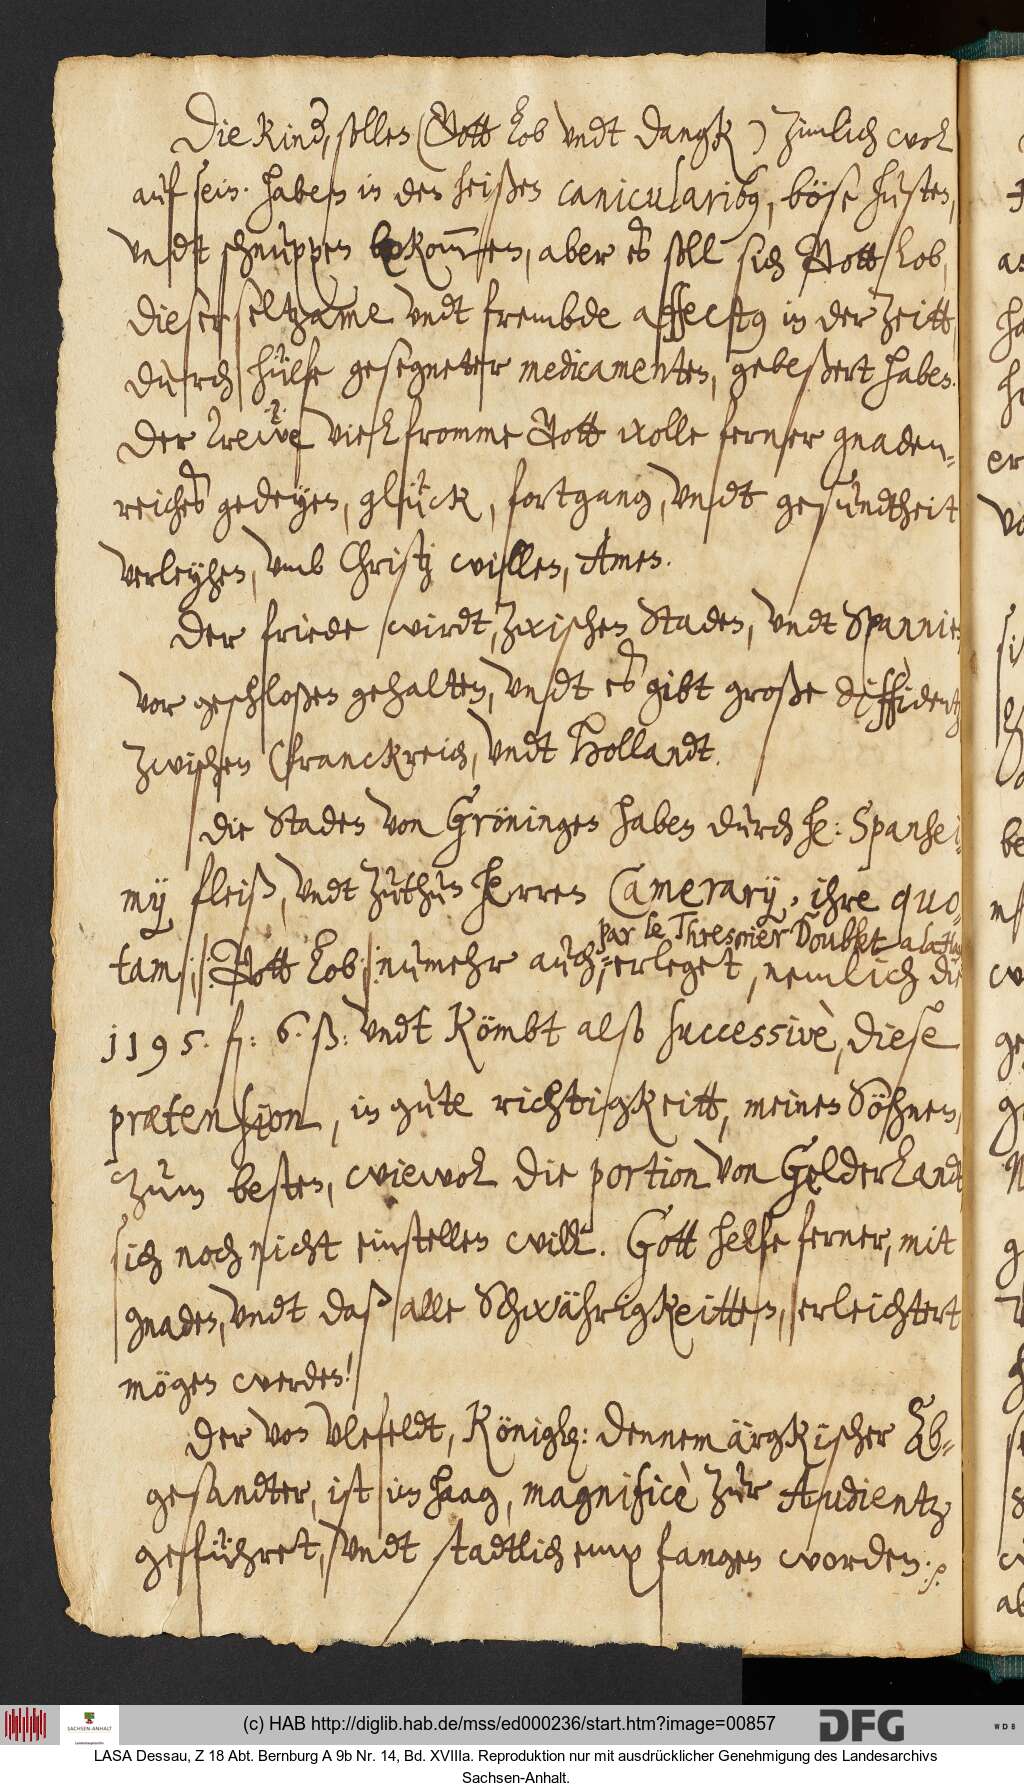 Die Kinder, sollen (Gott lob vndt dangk) zimlich wol
auf sein. haben in den heißen canicularibus, böse husten,
vndt schnuppen bekommen, aber es soll sich Gott lob,
dieser seltzame vndt frembde affectus in der Zeitt,
durch hülfe gesegneter medicamenten, gebeßert haben.
Der Trewe vielfromme Gott wolle ferner gnaden-
reiches gedeyen, glück, fortgang, vndt gesundtheit
verleyhen, vmb Christj willen, Amen.
Der friede wirdt, zwischen Staden, vndt Spannien
vor geschloßen gehalten, vndt es gibt große diffidentz
zwischen Franckreich, vndt Hollandt.
Die Staden von Gröningen haben durch he: Spanhei-
mij fleiß, vndt zuthun herren Camerarij, ihre quo-
par le Thresorier Doublet a la Haye
tam /: Gott lob :/ numehr auch, erleget, nemlich die
1195. f: 6. ß: vndt Kömbt also successivè, diese
prætension, in gute richtigkeitt, meinen Söhnen,
zum besten, wiewol die portion von Gelderlandt
sich noch nicht einstellen will. Gott helfe ferner, mit
gnaden, vndt daß alle Schwährigkeitten, erleichtert
mögen werden!
Der von Vlefeldt, Königl: Dennemärgkischer Ab-
gesandter, ist im Haag, magnificè zur Audientz
geführet, vndt stadtlich empfangen worden.
(c) HAB http://diglib.hab.de/mss/ed000236/start.htm?image=00857
SACHSEN-ANHALT
DFG
WDB
LASA Dessau, Z 18 Abt. Bernburg A 9b Nr. 14, Bd. XVIIIa. Reproduktion nur mit ausdrücklicher Genehmigung des Landesarchivs
Sachsen-Anhalt.